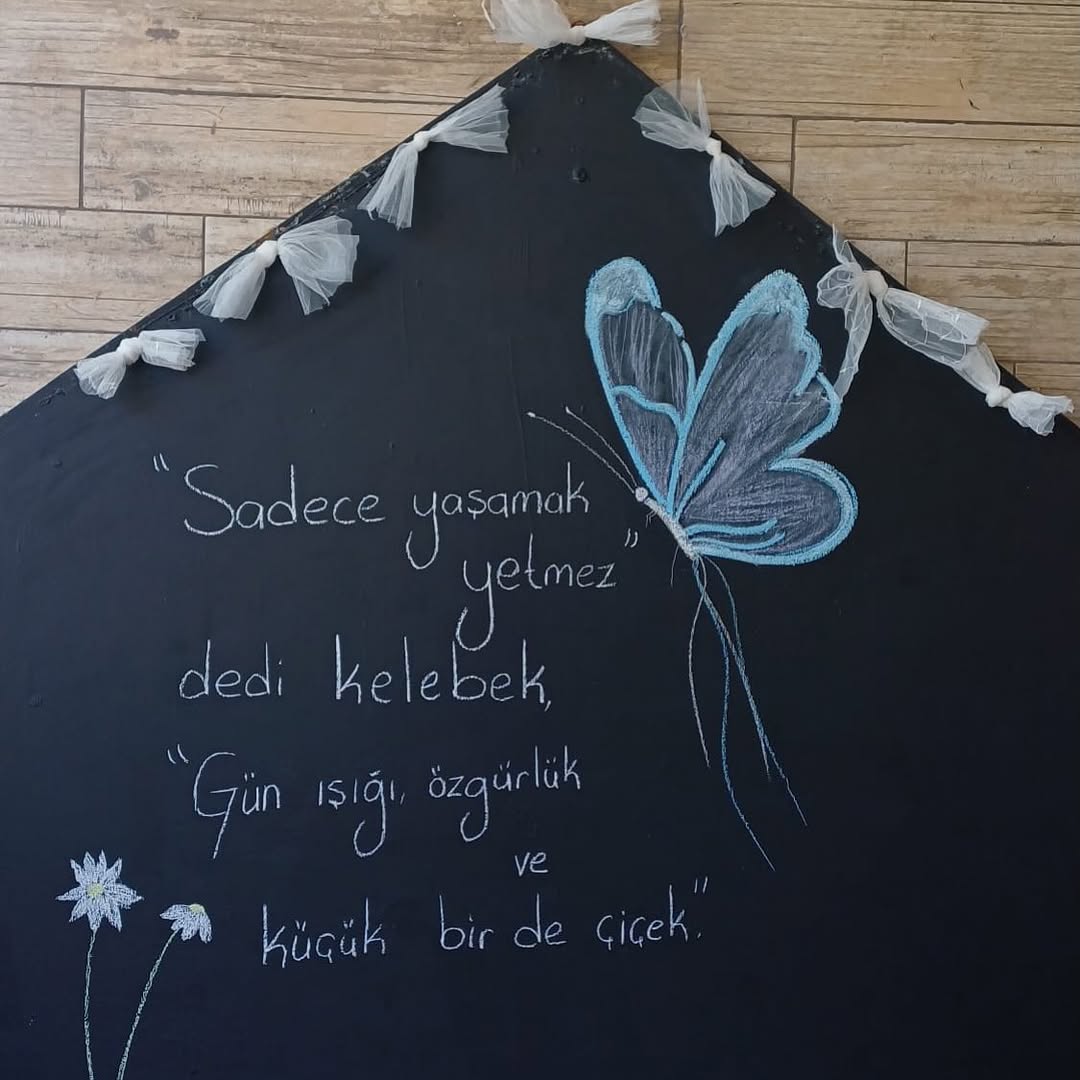 "Sadece yaşamak
yetmez"
dedi kelebek,
"Gün ışığı, özgürlük
ve
küçük bir de çiçek."